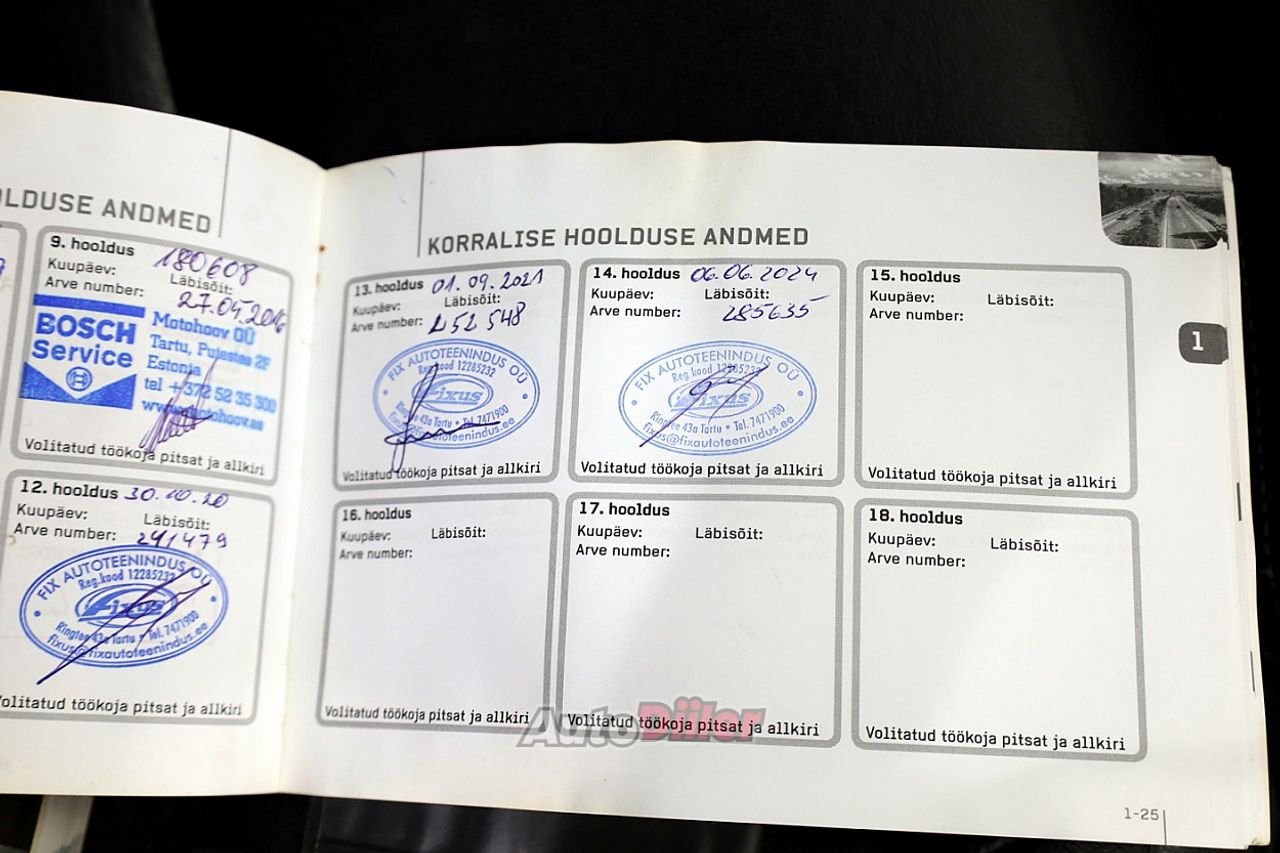 OLDUSE ANDMED
9. hooldus 180608
Kuupäev: Läbisõit:
Arve number: 27.04.2016
BOSCH
Service
Motohoov OÜ
Tartu, Puiestee 2F
Estonia
tel +372 52 35 300
www.motohoov.ee
Volitatud töökoja pitsat ja allkiri
12. hooldus 30.10.20
Kuupäev: Läbisõit:
Arve number: 241479
FIX AUTOTEENINDUS OÜ
Reg.kood 12285232
Fixus
Ringtee 43a Tartu • Tel. 7471900
fixus@fixautoteenindus.ee
Volitatud töökoja pitsat ja allkiri
KORRALISE HOOLDUSE ANDMED
13. hooldus 01.09.2021
Kuupäev: Läbisõit:
Arve number: 252 548
FIX AUTOTEENINDUS OÜ
Reg.kood 12285232
Fixus
Ringtee 43a Tartu • Tel. 7471900
fixus@fixautoteenindus.ee
Volitatud töökoja pitsat ja allkiri
14. hooldus 06.06.2024
Kuupäev: Läbisõit:
Arve number: 285635
FIX AUTOTEENINDUS OÜ
Reg.kood 12285232
Fixus
Ringtee 43a Tartu • Tel. 7471900
fixus@fixautoteenindus.ee
Volitatud töökoja pitsat ja allkiri
15. hooldus
Kuupäev: Läbisõit:
Arve number:
Volitatud töökoja pitsat ja allkiri
1
16. hooldus
Kuupäev: Läbisõit:
Arve number:
Volitatud töökoja pitsat ja allkiri
17. hooldus
Kuupäev: Läbisõit:
Arve number:
Volitatud töökoja pitsat ja allkiri
18. hooldus
Kuupäev: Läbisõit:
Arve number:
Volitatud töökoja pitsat ja allkiri
AutoDiiler
1-25